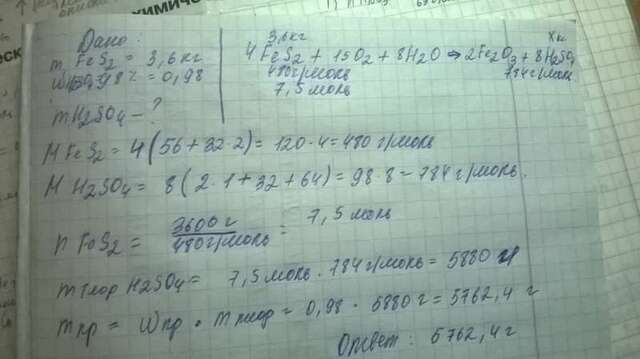 химиче
Дано:
m FeS2 = 3,6 кг
W 98% = 0,98
m H2SO4 - ?
3,6 кг X кг
4 FeS2 + 15O2 + 8H2O → 2Fe2O3 + 8H2SO4
480 г/моль 784 г/моль
7,5 моль
M FeS2 = 4(56+32·2) = 120·4 = 480 г/моль
M H2SO4 = 8(2·1+32+64) = 98·8 = 784 г/моль.
n FeS2 = 3600 г / 480 г/моль = 7,5 моль
m теор H2SO4 = 7,5 моль · 784 г/моль = 5880 г
m пр = Wпр · m теор = 0,98 · 5880 г = 5762,4 г
Ответ: 5762,4 г